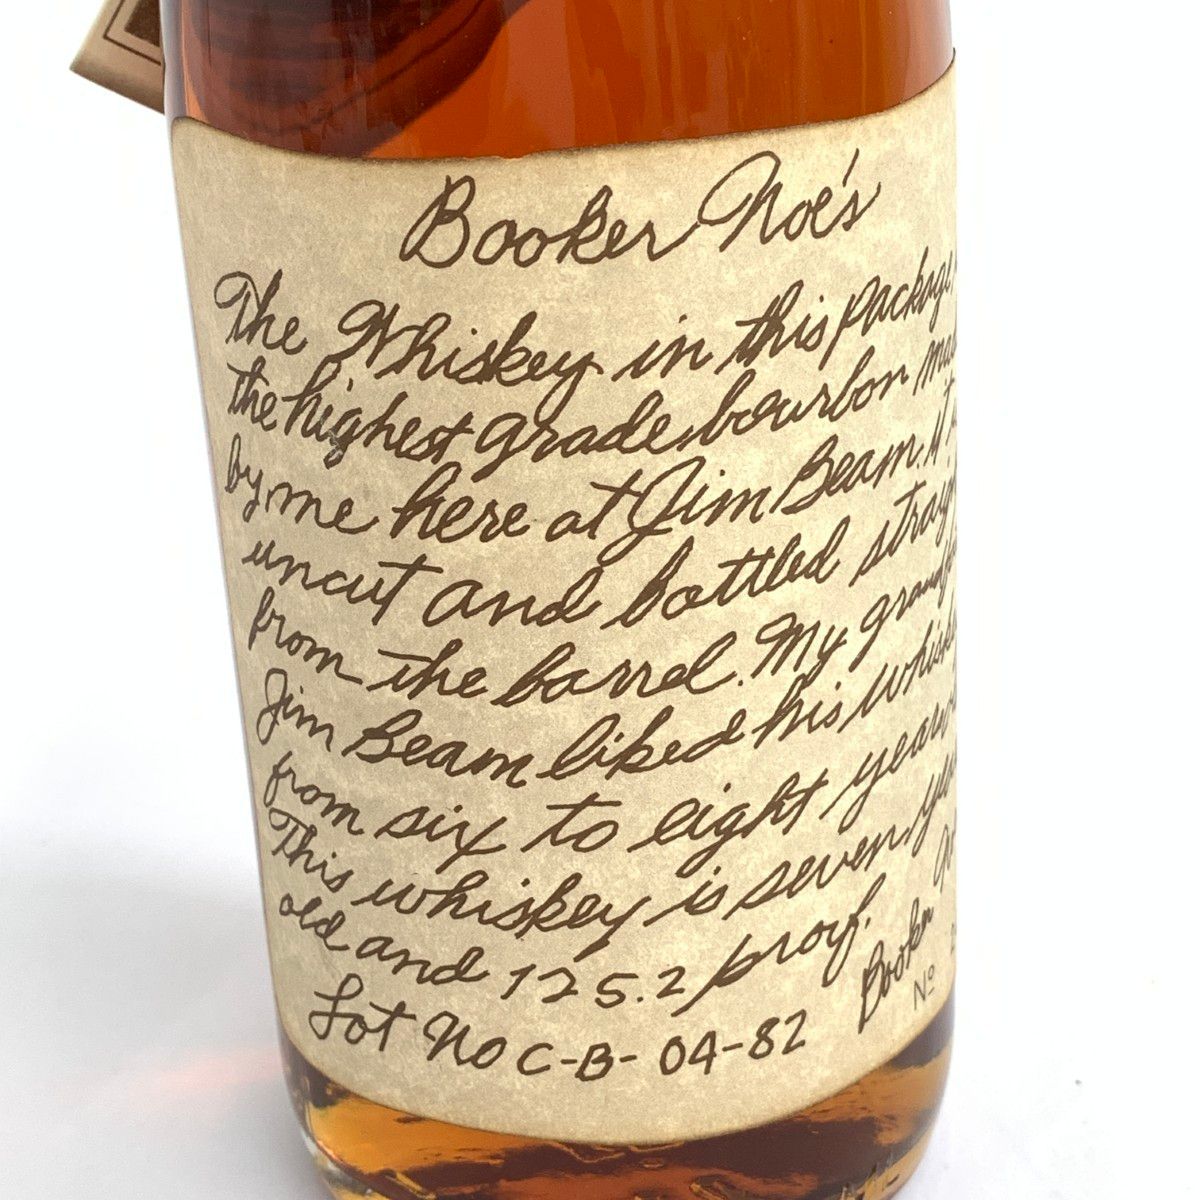 Booker Noé's
The Whiskey in this package
the highest grade bourbon
by me here at Jim Beam. It
uncut and bottled straigh
from the barrel. My grandf
Jim Beam liked his whisk
from six to eight years
This whiskey is seven
old and 125.2 proof.
Booker No
Lot No C-B-04-82
Nº